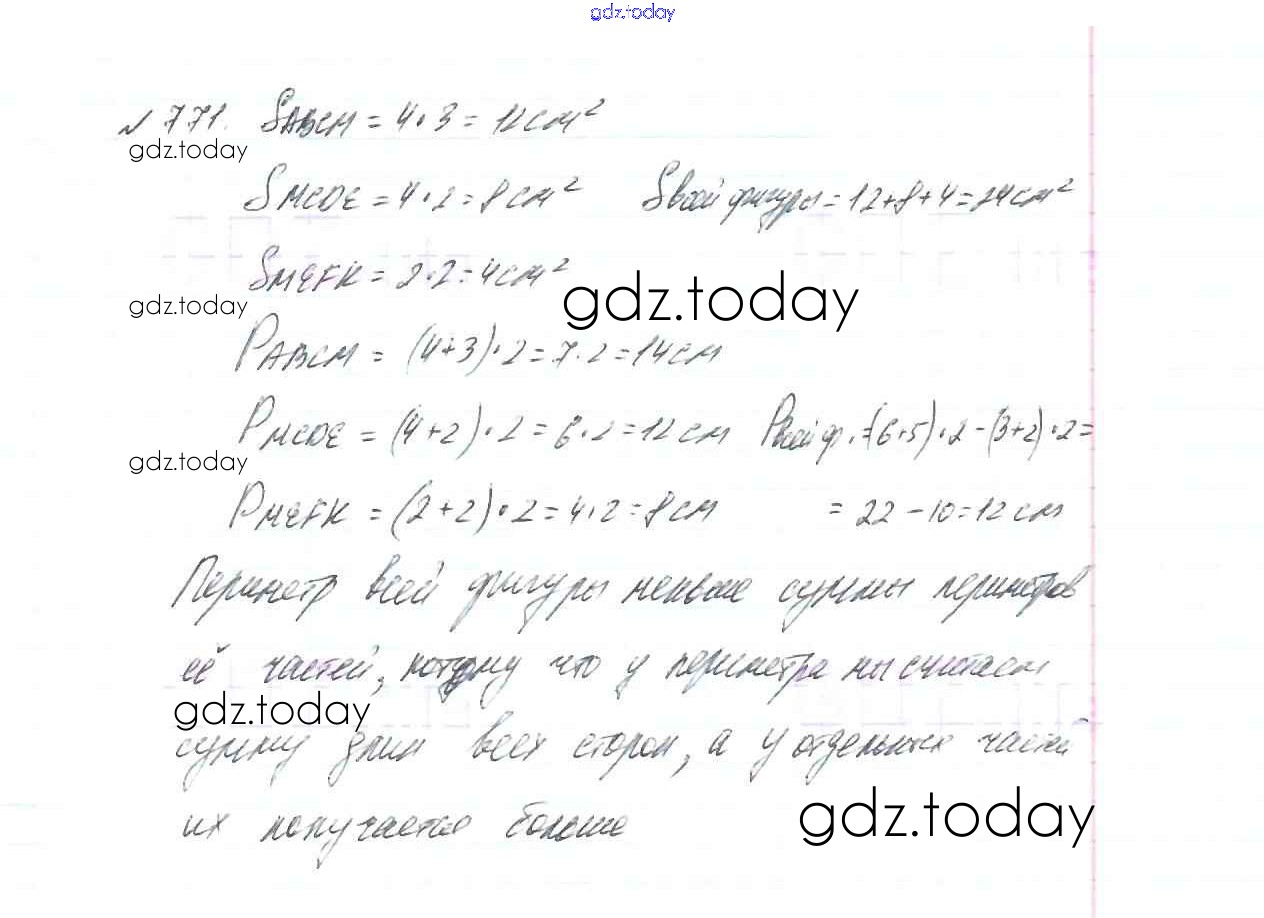 gdz.today
№ 771. SABCM = 4·3 = 12 см²
gdz.today
SMCDE = 4·2 = 8 см² Sвсей фигуры = 12+8+4=24 см²
SMEFK = 2·2=4 см²
gdz.today
gdz.today
PABCM = (4+3)·2=7·2=14 см
PMCDE = (4+2)·2=6·2=12 см Pвсей ф.=(6+5)·2-(3+2)·2=
gdz.today
PMEFK = (2+2)·2=4·2=8 см = 22-10=12 см
Периметр всей фигуры меньше суммы периметров
её частей, потому что у периметра мы считаем
gdz.today
сумму длин всех сторон, а у отдельных частей
их получается больше
gdz.today